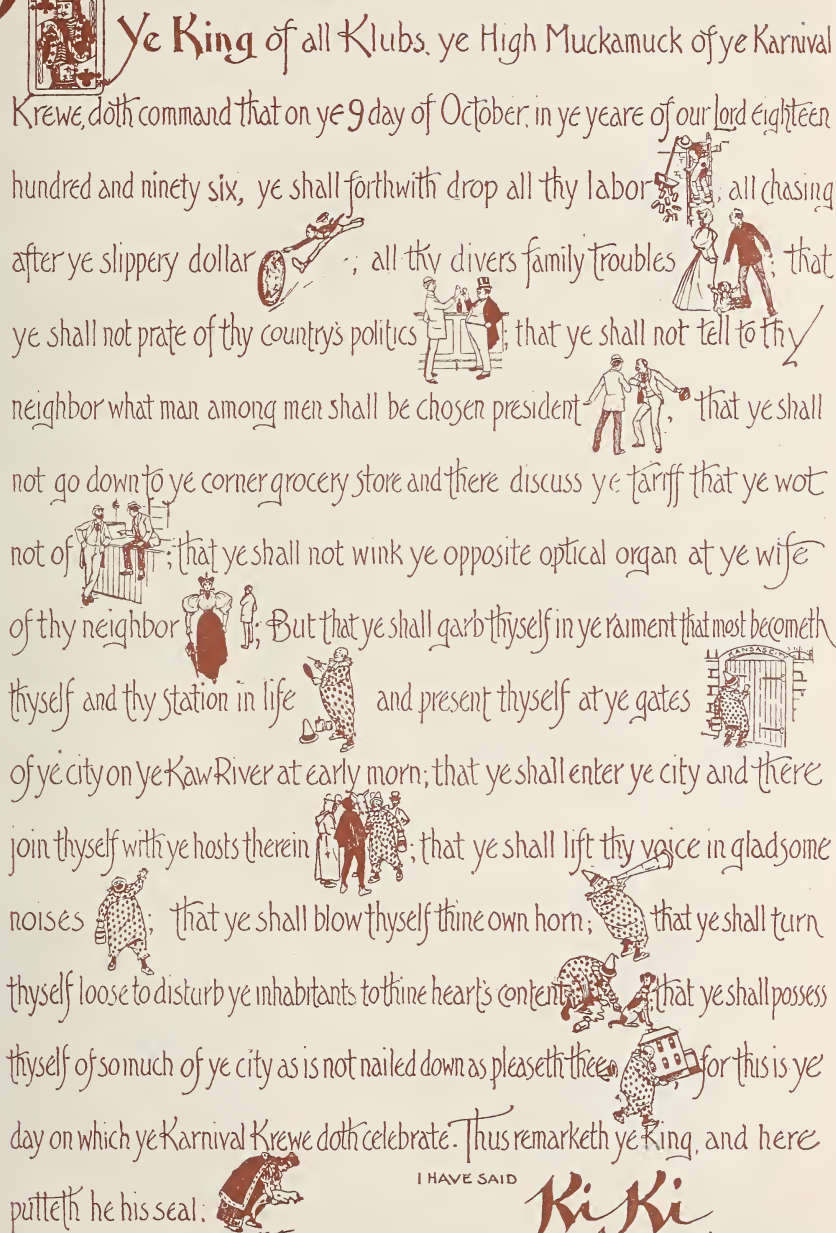 Ye King of all Klubs, ye High Muckamuck of ye Karnival
Krewe, doth command that on ye 9 day of October, in ye yeare of our Lord eighteen
hundred and ninety six, ye shall forthwith drop all thy labor ; all chasing
after ye slippery dollar ; all thy divers family troubles ; that
ye shall not prate of thy country's politics ; that ye shall not tell to thy
neighbor what man among men shall be chosen president ; that ye shall
not go down to ye corner grocery store and there discuss ye tariff that ye wot
not of ; that ye shall not wink ye opposite optical organ at ye wife
of thy neighbor ; But that ye shall garb thyself in ye raiment that most becometh
thyself and thy station in life and present thyself at ye gates
KANSAS CITY
of ye city on ye Kaw River at early morn; that ye shall enter ye city and there
join thyself with ye hosts therein ; that ye shall lift thy voice in gladsome
noises ; that ye shall blow thyself thine own horn; that ye shall turn
thyself loose to disturb ye inhabitants to thine heart's content ; that ye shall possess
thyself of so much of ye city as is not nailed down as pleaseth thee ; for this is ye
day on which ye Karnival Krewe doth celebrate. Thus remarketh ye King, and here
putteth he his seal:
I HAVE SAID
Ki Ki